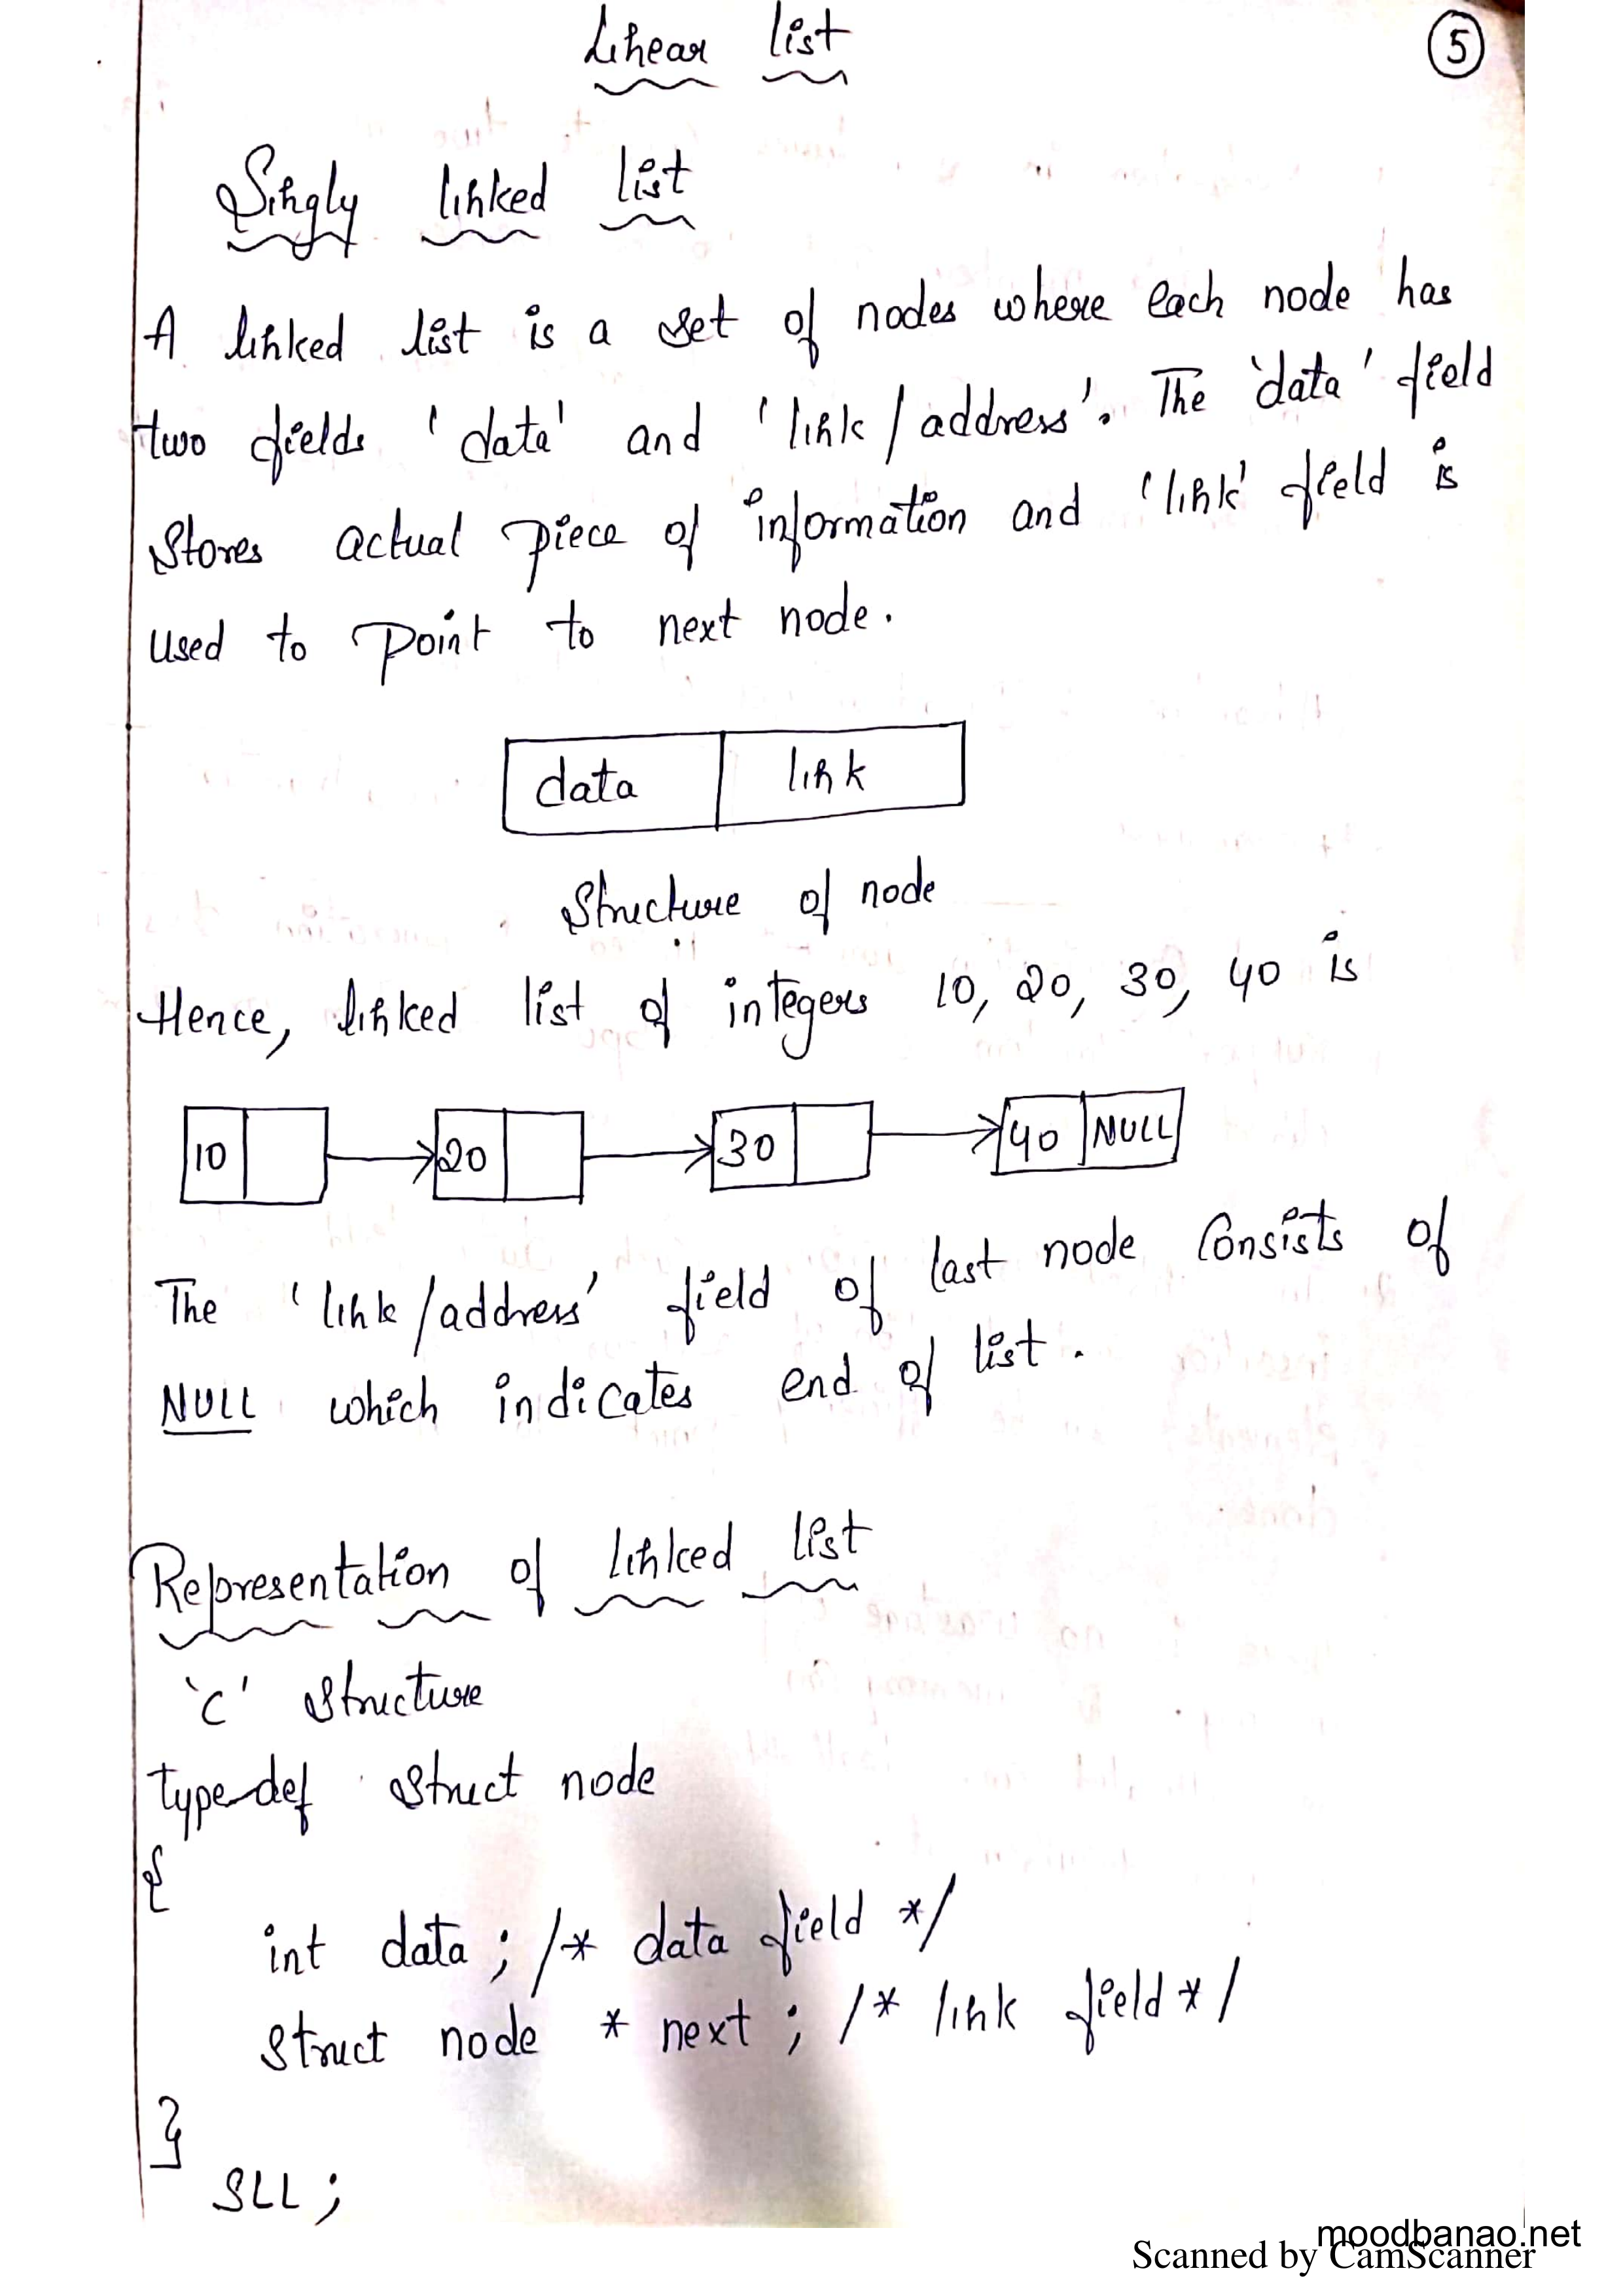 Linear list
5
Singly linked list
A linked list is a set of nodes where each node has
two fields 'data' and 'link/address'. The 'data' field
stores actual piece of information and 'link' field is
used to point to next node.
data link
Structure of node
Hence, linked list of integers 10, 20, 30, 40 is
10 20 30 40 NULL
The 'link/address' field of last node consists of
NULL which indicates end of list.
Representation of linked list
'C' structure
typedef struct node
{
int data; /* data field */
struct node * next; /* link field */
}
SLL;
moodbanao.net
Scanned by CamScanner